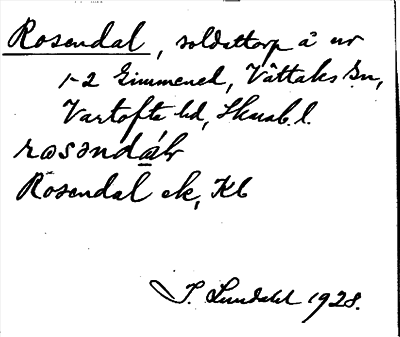 Rosendal, soldattorp å nr
1-2 Gimmened, Vättaks sn,
Vartofta hd, Skarab. l.
rωsəndáɫ
Rosendal ek, Kb
I. Lundahl 1928.